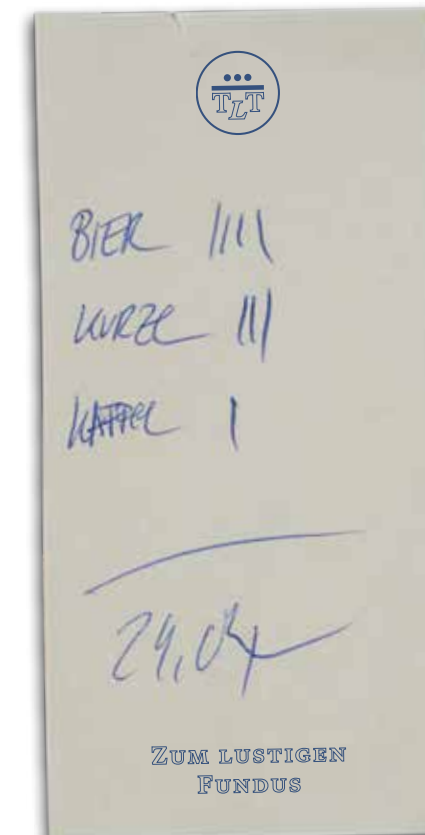 TLT
BIER ||||
KURZE |||
KAFFEE |
ZUM LUSTIGEN
FUNDUS